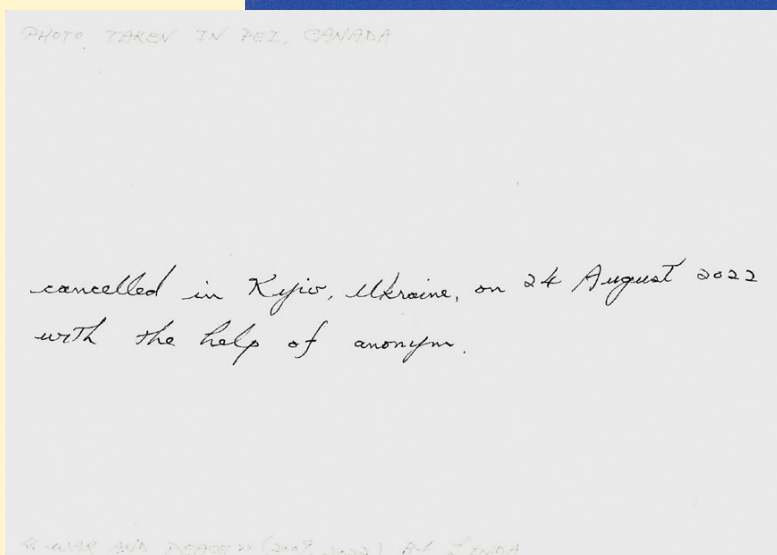 PHOTO TAKEN IN PEI, CANADA
cancelled in Kyiv, Ukraine, on 24 August 2022
with the help of anonym.
« WAR AND PEACE » (2007, 2022) BY LINDA